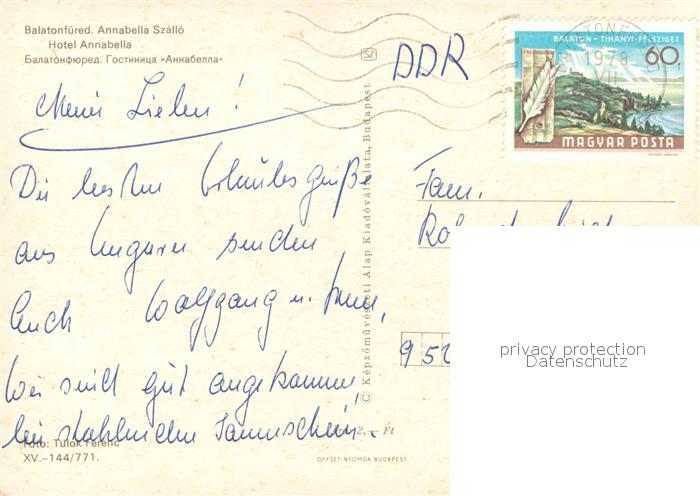 Balatonfüred. Annabella Szálló
Hotel Annabella
Балатонфюред. Гостиница «Аннабелла»
SZ
DDR
BALATON - TIHANYI-FÉLSZIGET
60
MAGYAR POSTA
1978
VII
Meine Lieben!
Die besten Urlaubsgrüße
aus Ungarn senden
Euch Wolfgang u.
Wir sind gut angekommen,
bei strahlendem Sonnenschein.
Fam.
952
© Képzőművészeti Alap Kiadóvállalata, Budapest
2,– Ft
Foto: Tulok Ferenc
XV.–144/771.
OFFSET-NYOMDA, BUDAPEST
privacy protection
Datenschutz